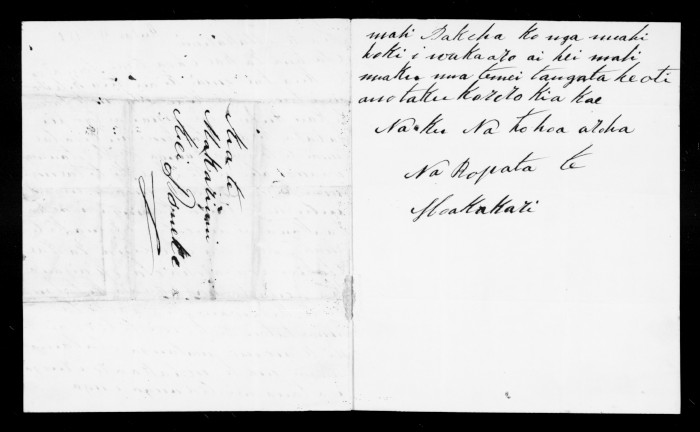 Kia te
Makarini
Kei Poneke
mahi Pakeha ko nga mahi
hoki i wakaaro ai hei mahi
maku ma tenei tangata heoti
ano taku korero kia koe
Naku Na to hoa aroha
Na Ropata te
Hoakakari